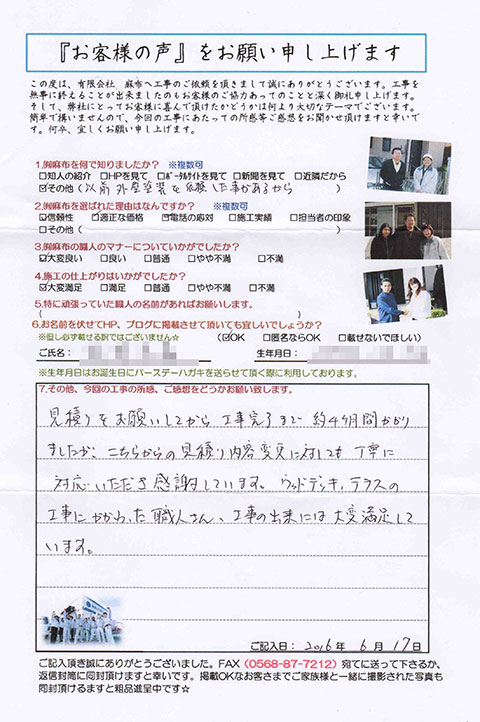 『お客様の声』をお願い申し上げます
この度は、有限会社　麻布へ工事のご依頼を頂きまして誠にありがとうございます。工事を
無事に終えることが出来ましたのもお客様のご協力あってのことと深く御礼申し上げます。
そして、弊社にとってお客様に喜んで頂けたかどうかは何より大切なテーマでございます。
簡単で構いませんので、今回の工事にあたっての所感等ご感想をお聞かせ頂けますと幸いで
す。何卒、宜しくお願い申し上げます。
1.㈲麻布を何で知りましたか？　※複数可
□知人の紹介　□HPを見て　□ﾎﾟｰﾀﾙサイトを見て　□新聞を見て　□近隣だから
☑その他（以前外壁塗装を依頼した事があるから）
2.㈲麻布を選ばれた理由はなんですか？　※複数可
☑信頼性　☑適正な価格　☑電話の応対　□施工実績　□担当者の印象
□その他（　）
3.㈲麻布の職人のマナーについていかがでしたか？
☑大変良い　□良い　□普通　□やや不満　□不満
4.施工の仕上がりはいかがでしたか？
☑大変満足　□満足　□普通　□やや不満　□不満
5.特に頑張っていた職人の名前があればお願いします。
（　）
6.お名前を伏せてHP、ブログに掲載させて頂いても宜しいでしょうか？
※但し必ず載せる訳ではございません☆　（☑OK　□匿名ならOK　□載せないでほしい）
ご氏名：　生年月日：
※生年月日はお誕生日にバースデーハガキを送らせて頂く際に利用しております。
7.その他、今回の工事の所感、ご感想をどうかお願い致します。
見積りをお願いしてから工事完了まで約4ヶ月間かかり
ましたが、こちらからの見積り内容変更に対しても丁寧に
対応いただき感謝しています。ウッドデッキ、テラスの
工事にかかわった職人さん、工事の出来には大変満足して
います。
ご記入日：2016年 6月 17日
ご記入頂き誠にありがとうございました。FAX（0568-87-7212）宛てに送って下さるか、
返信封筒に同封頂けますと幸いです。掲載OKなお客さまでご家族様と一緒に撮影された写真も
同封頂けるますと粗品進呈中です☆